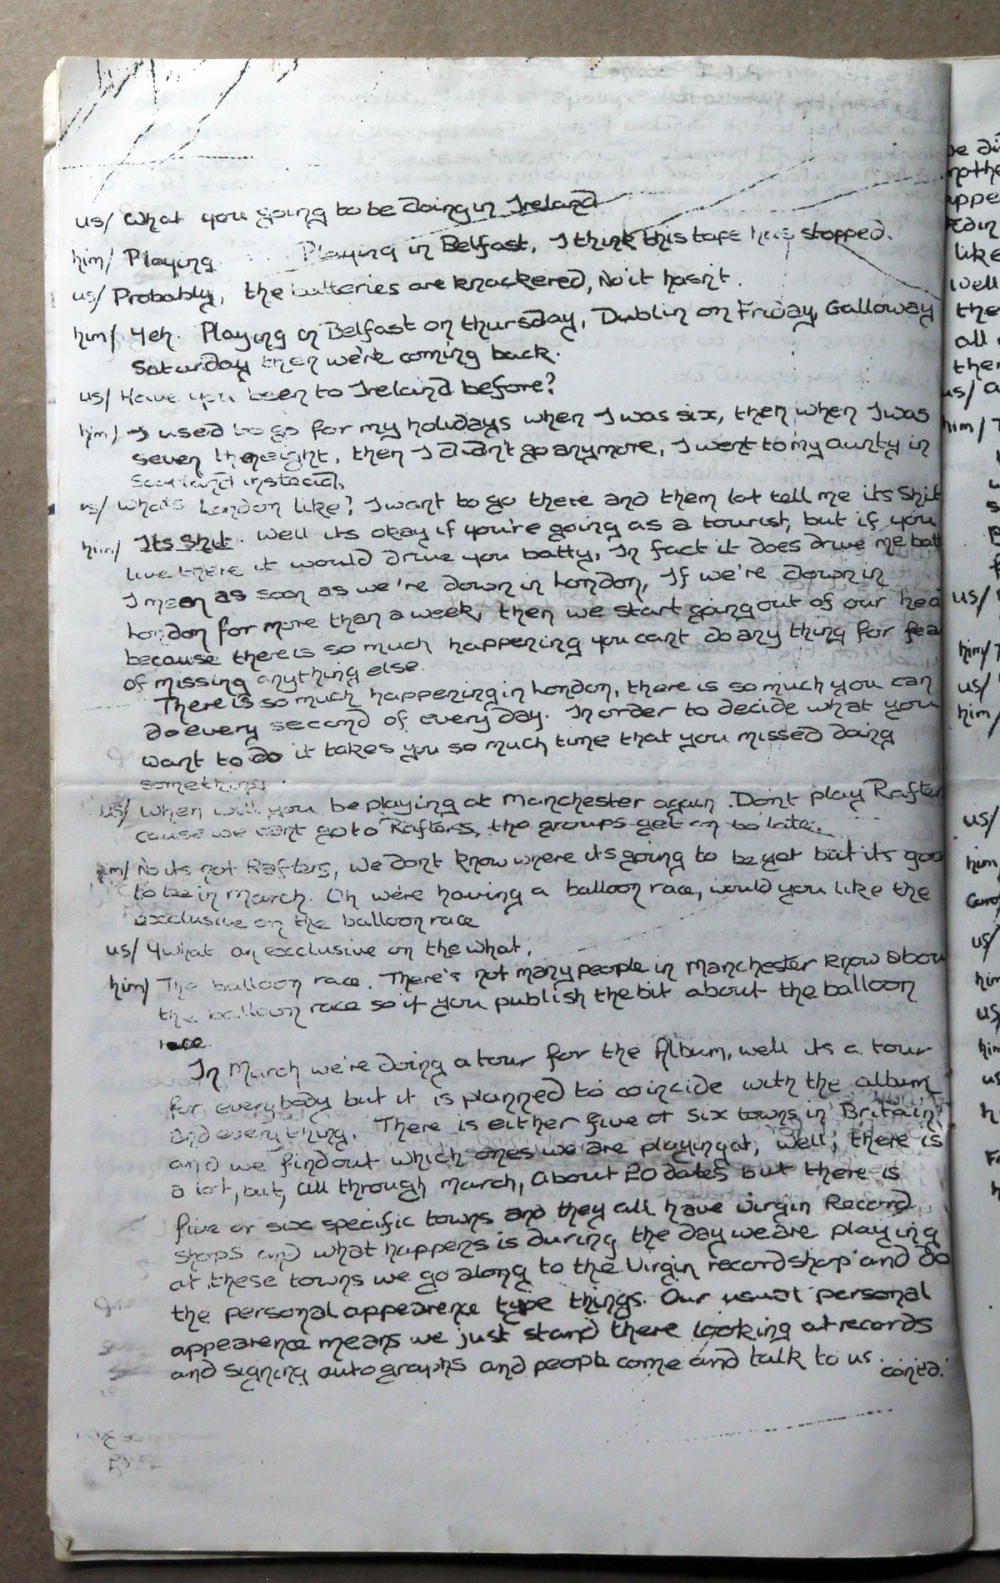 us/ What you going to be doing in Ireland
him/ Playing. Playing in Belfast, I think this tape has stopped.
us/ Probably, the batteries are knackered, No it hasn't.
him/ Yeh. Playing in Belfast on thursday, Dublin on Friday, Galloway
Saturday then we're coming back.
us/ Have you been to Ireland before?
him/ I used to go for my holidays when I was six, then when I was
seven then eight, then I didn't go anymore, I went to my aunty in
Scotland instead.
us/ whats London like? I want to go there and them lot tell me its Shit
him/ Its Shit. Well its okay if you're going as a tourist, but if you
live there it would drive you batty, In fact it does drive me bat
I mean as soon as we're down in London, If we're down in
London for more than a week, then we start going out of our hea
because there is so much happening you cant do any thing for fea
of missing anything else.
There is so much happening in London, there is so much you can
do every second of every day. In order to decide what you
want to do it takes you so much time that you missed doing
something.
us/ When will you be playing at Manchester again. Dont play Rafter
cause we cant go to Rafters, the groups get on to late.
him/ No its not Rafters, we dont know where its going to be yet but its goo
to be in March. Oh we're having a balloon race, would you like the
exclusive on the balloon race
us/ what an exclusive on the what.
him/ The balloon race. There's not many people in Manchester know abou
the balloon race so if you publish the bit about the balloon
race.
In March we're doing a tour for the Album, well its a tour
for everybody but it is planned to coincide with the album
and everything. There is either five of six towns in Britain
and we find out which ones we are playing at, well, there is
a lot, but, all through march, About 20 dates but there is
five or six specific towns and they all have virgin Record
shops and what happens is during the day we are playing
at these towns we go along to the Virgin record shop and do
the personal appearence type things. Our usual personal
appearence means we just stand there looking at records
and signing autographs and people come and talk to us.
contd.
like
well
the
all
us/
him/
us/
him/
us/
him/
us/
him
us/
him
us/
him
us